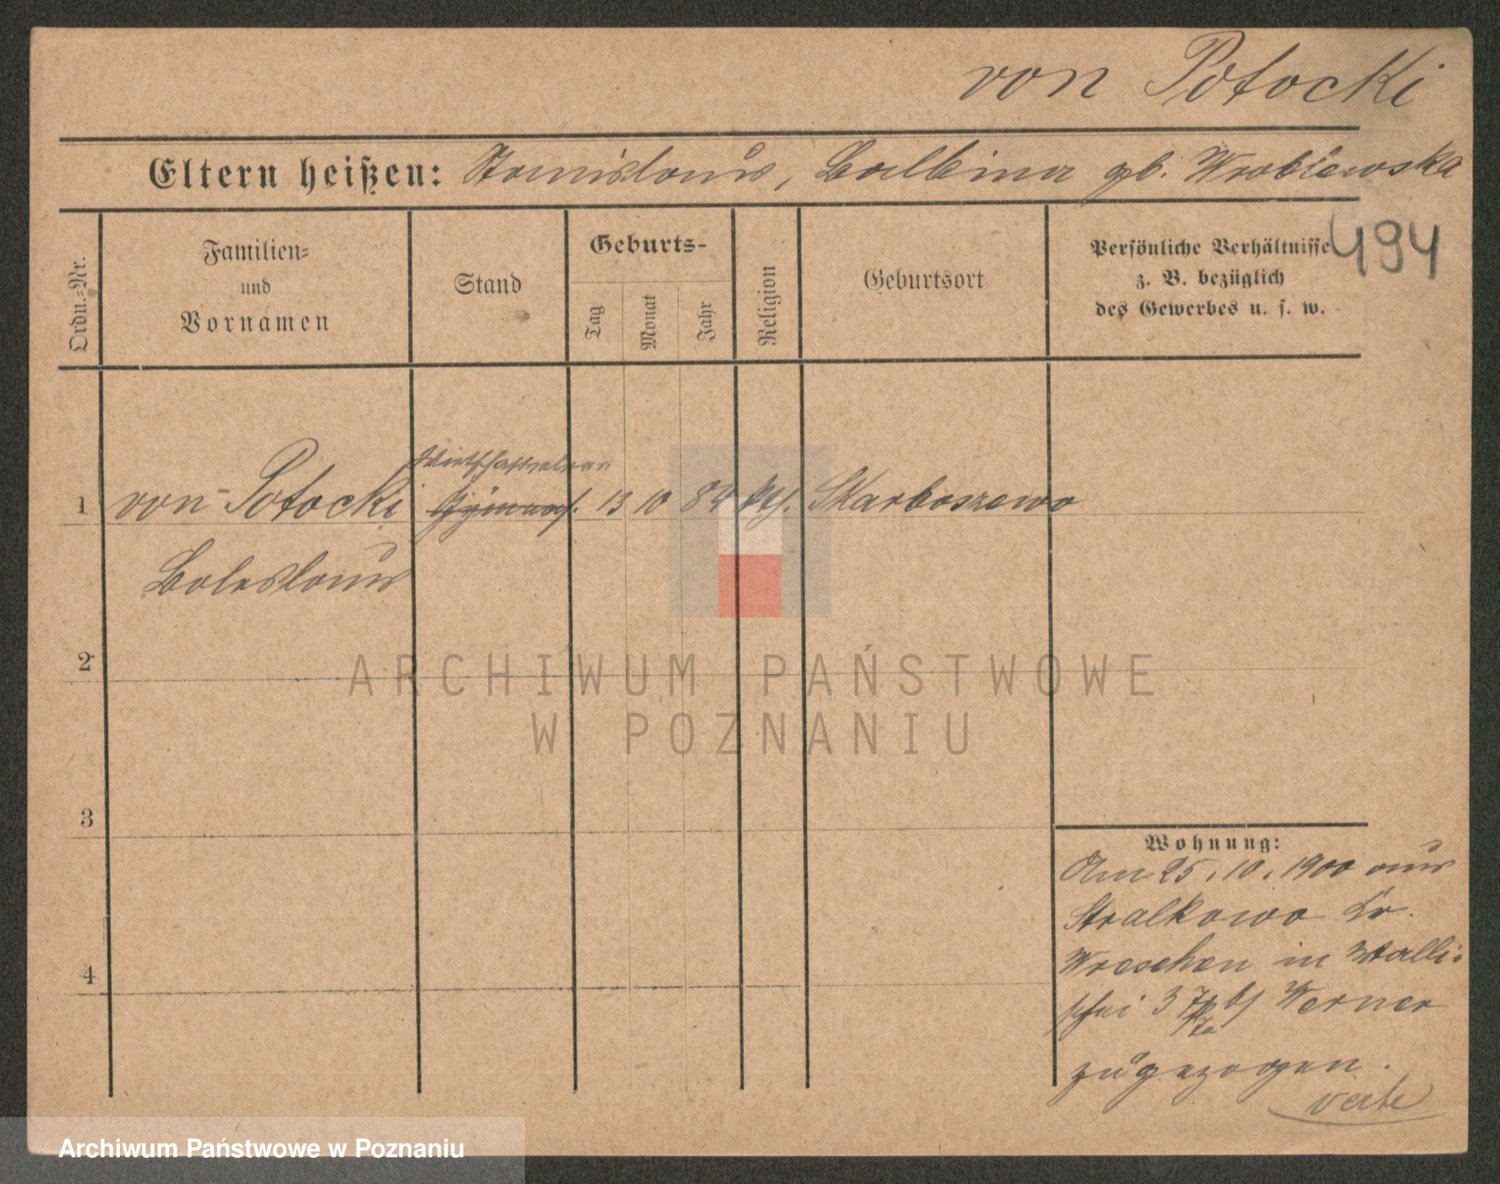 von Potocki
Eltern heißen: Stanislaus, Balbina gb. Wroblewska
494
Ordn.-Nr.
Familien-
und
Vornamen
Stand
Geburts-
Tag
Monat
Jahr
Religion
Geburtsort
Persönliche Verhältnisse
z. B. bezüglich
des Gewerbes u. s. w.
1 von Potocki Gymnas. 13 10 84 kth. Skarboszewo
Boleslaus
2
3
4
ARCHIWUM PAŃSTWOWE
W POZNANIU
Wohnung:
Am 25.10.1900 aus
Stralkowo Kr.
Wreschen in Walli-
schei 37 b/ Werner
zugezogen.
verte
Archiwum Państwowe w Poznaniu